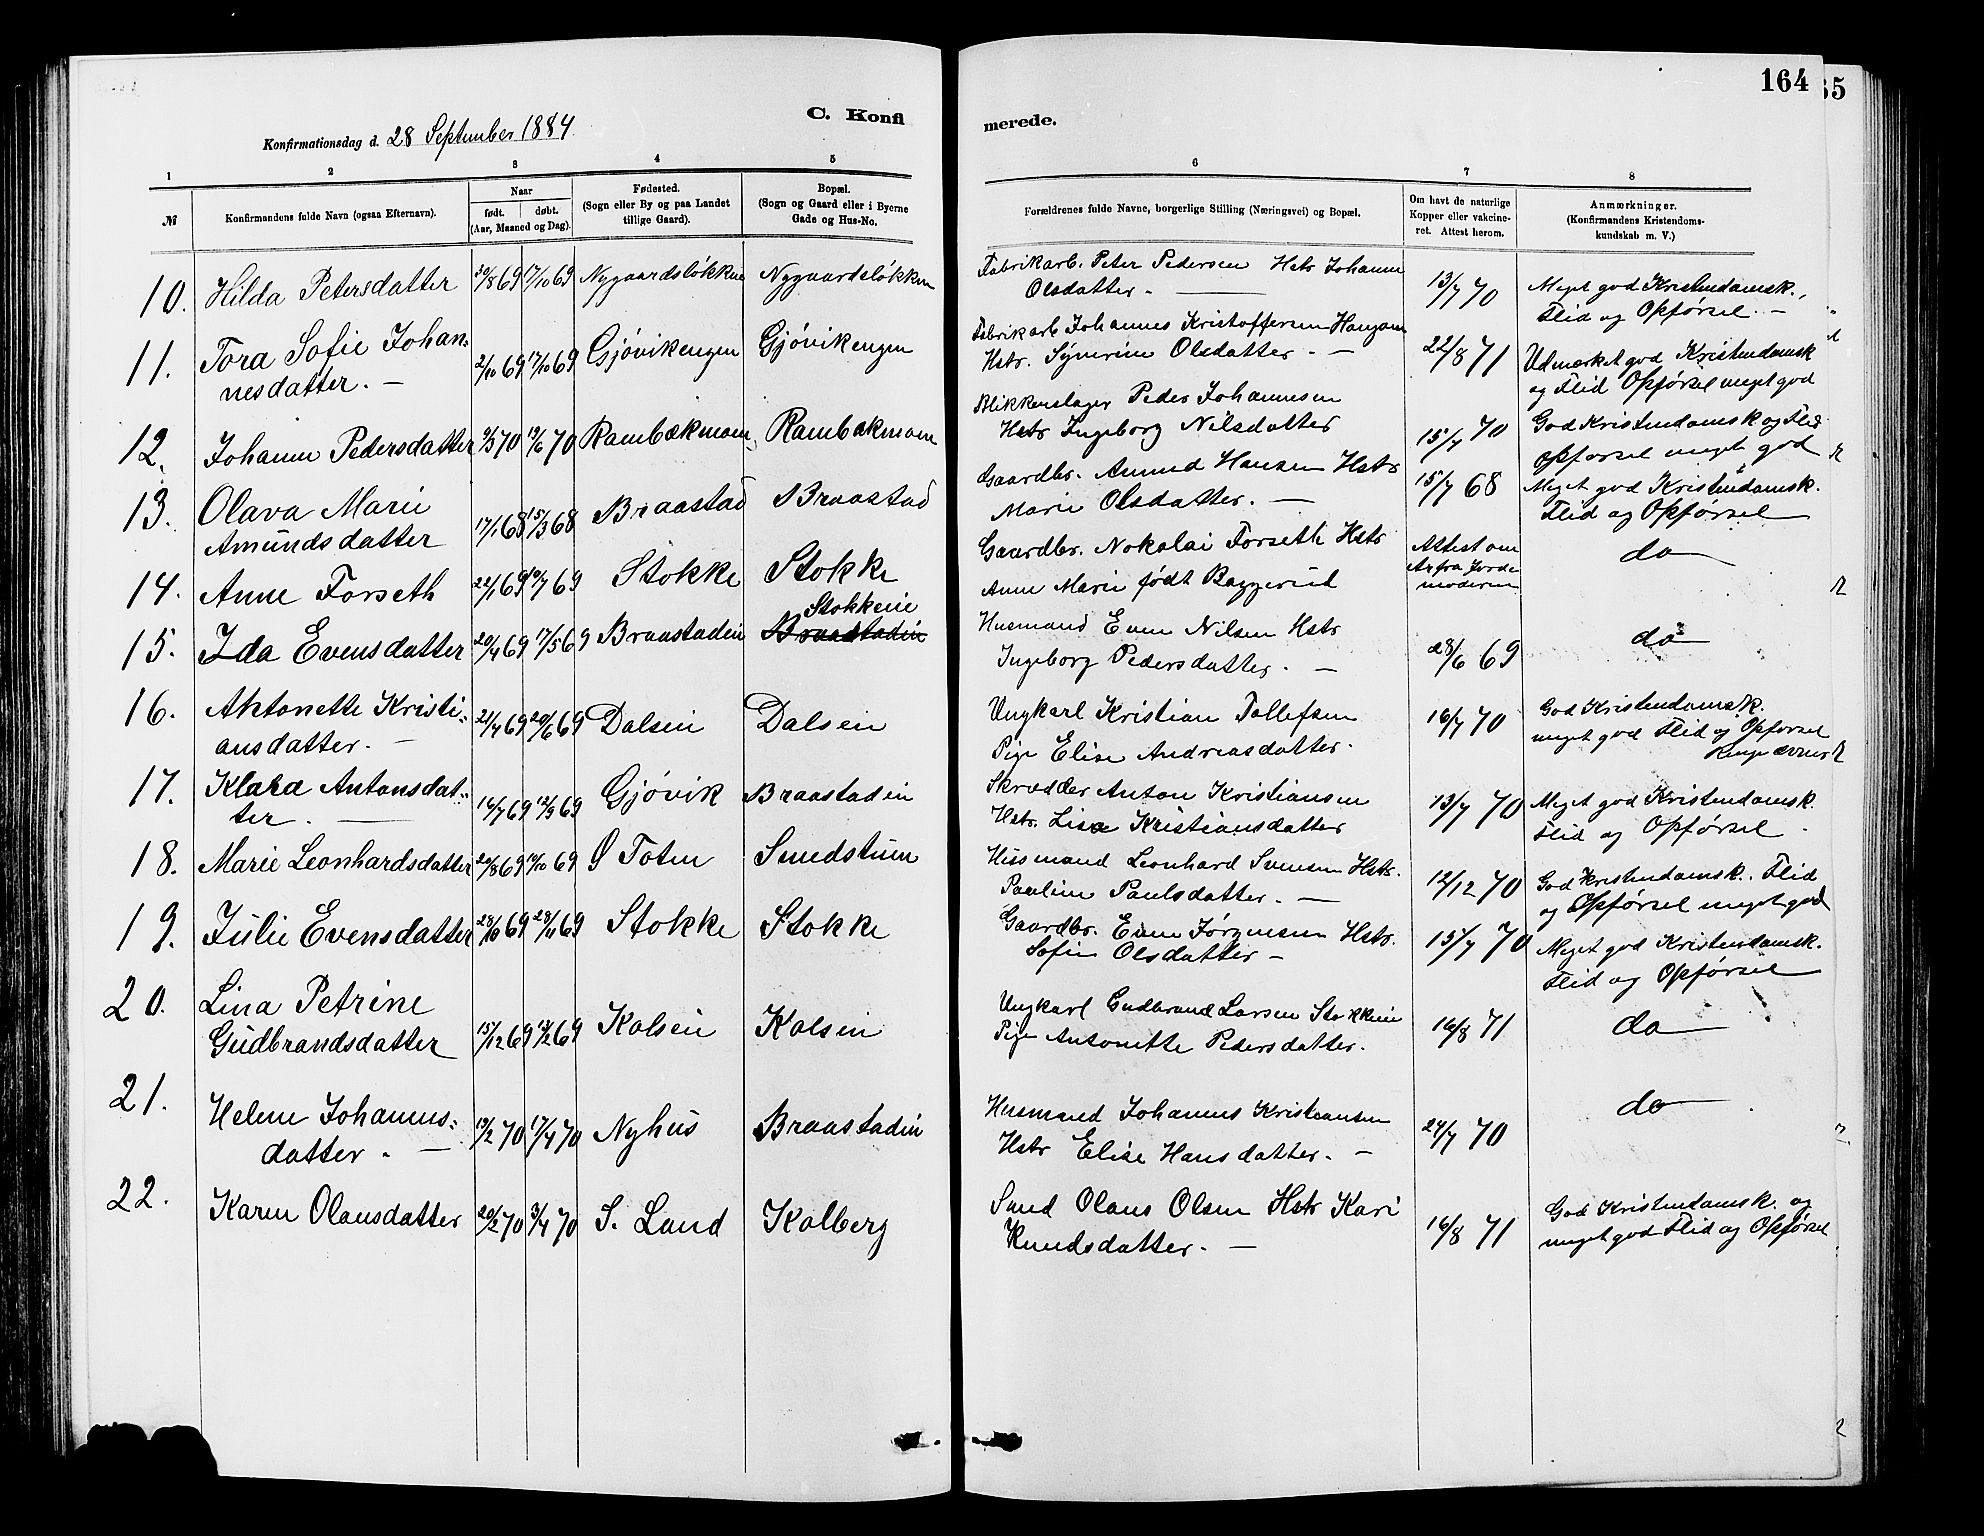 164
35
C. Konfi
merede.
Konfirmationsdag d. 28 September 1884
1 2 3 4 5
6 7 8
№
Konfirmandens fulde Navn (ogsaa Efternavn).
Naar
født. døbt.
(Aar, Maaned og Dag).
Fødested.
(Sogn eller By og paa Landet
tillige Gaard).
Bopæl.
(Sogn og Gaard eller i Byerne
Gade og Hus-No.
Forældrenes fulde Navne, borgerlige Stilling (Næringsvei) og Bopæl.
Om havt de naturlige
Kopper eller vakcine-
ret. Attest herom.
Anmærkninger.
(Konfirmandens Kristendoms-
kundskab m. V.)
10. Hilda Petersdatter 30/8 69 17/10 69 Nygaardsløkken Nygaardsløkken
Fabrikarb. Peter Pedersen Hstr Johanne
Olsdatter. —
13/7 70
Meget god Kristendomsk.,
Flid og Opførsel. —
11. Tora Sofie Johan-
nesdatter. —
2/10 69 17/10 69 Gjøvikengen Gjøvikengen
Fabrikarb Johannes Kristoffersen
Hstr. Syverine Olsdatter. —
22/8 71
Udmærket god Kristendomsk
og Flid Opførsel meget god
12. Johanne Pedersdatter 9/3 70 19/6 70 Rambækmoen Rambækmoen
Blikkenslager Peder Johannesen
Hstr Ingeborg Nilsdatter
15/7 70
God Kristendomsk og Flid
opførsel meget god
13. Olava Marie
Amundsdatter
17/1 68 15/3 68 Braastad Braastad
Gaardbr. Amund Hansen Hstr
Marie Olsdatter. —
15/7 68
Meget god Kristendomsk.
Flid og Opførsel
14. Anne Forseth 22/1 69 69 Stokke Stokke
Gaardbr. Nokolai Forseth Hstr
Anne Marie født Baggerud
Attest om
Ar fra Jorde
moderen
do
15. Ida Evensdatter 20/4 69 17/5 69 Braastadein Stokkeie
Braastadein
Husmand Even Nilsen Hstr
Ingeborg Pedersdatter. —
28/6 69
do
16. Antonette Kristi-
ansdatter. —
21/4 69 20/6 69 Dalsein Dalsein
Ungkarl Kristian Tollefsen
Pige Elise Andreasdatter.
16/7 70
God Kristendomsk.
meget god Flid og Opførsel
Ringe ævner
17. Klara Antonsdat-
ter. —
16/7 69 12/9 69 Gjøvik Braastadein
Skrædder Anton Kristiansen
Hstr. Lise Kristiansdatter
13/7 70
Meget god Kristendomsk.
Flid og Opførsel
18. Marie Leonhardsdatter 20/8 69 69 Ø Toten Smedstuen
Husmand Leonhard Svensen Hstr.
Pauline Paulsdatter. —
12/12 70
God Kristendomsk. Flid
og Opførsel meget god
19. Julie Evensdatter 28/10 69 28/11 69 Stokke Stokke
Gaardbr. Even Jørgensen Hstr.
Sofie Olsdatter —
15/7 70
Meget god Kristendomsk.
Flid og Opførsel
20. Lina Petrine
Gudbrandsdatter
15/12 69 69 Kolsein Kolsein
Ungkarl Gudbrand Larsen Stokkeie
Pige Antonette Pedersdatter.
16/8 71
do
21. Helene Johannes-
datter. —
19/2 70 17/4 70 Nyhus Braastadein
Husmand Johannes Kristiansen
Hstr Elise Hansdatter. —
24/7 70
do
22. Karen Olausdatter 20/2 70 3/4 70 S. Land Kolberg
Smed Olaus Olsen Hstr Kari
Knudsdatter. —
16/8 71
God Kristendomsk. og
meget god Flid og Opførsel